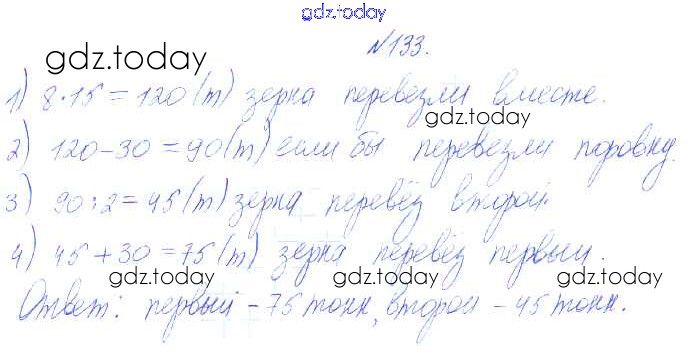 gdz.today
№133.
gdz.today
1) 8·15=120(т) зерна перевезли вместе.
gdz.today
2) 120-30=90(т) если бы перевезли поровну.
3) 90:2=45(т) зерна перевёз второй.
4) 45+30=75(т) зерна перевёз первый.
gdz.today gdz.today gdz.today
Ответ: первый - 75 тонн, второй - 45 тонн.
gdz.today